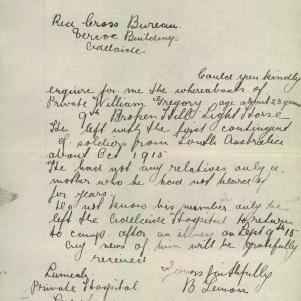 Red Cross Bureau
Verco Buildings
Adelaide
Could you kindly
enquire for me the whereabouts of
Private William Gregory age about 23 years
9th Broken Hill Light Horse
He left with the first contingent
of soldiers from South Australia
about Oct 1915
He had not any relatives only a
mother who he had not heard of
for years.
Do not know his number only he
left the Adelaide Hospital to return
to camp after an illness on Sept 9th 15
Any news of him will be gratefully
received
Yours faithfully
Private Hospital
B